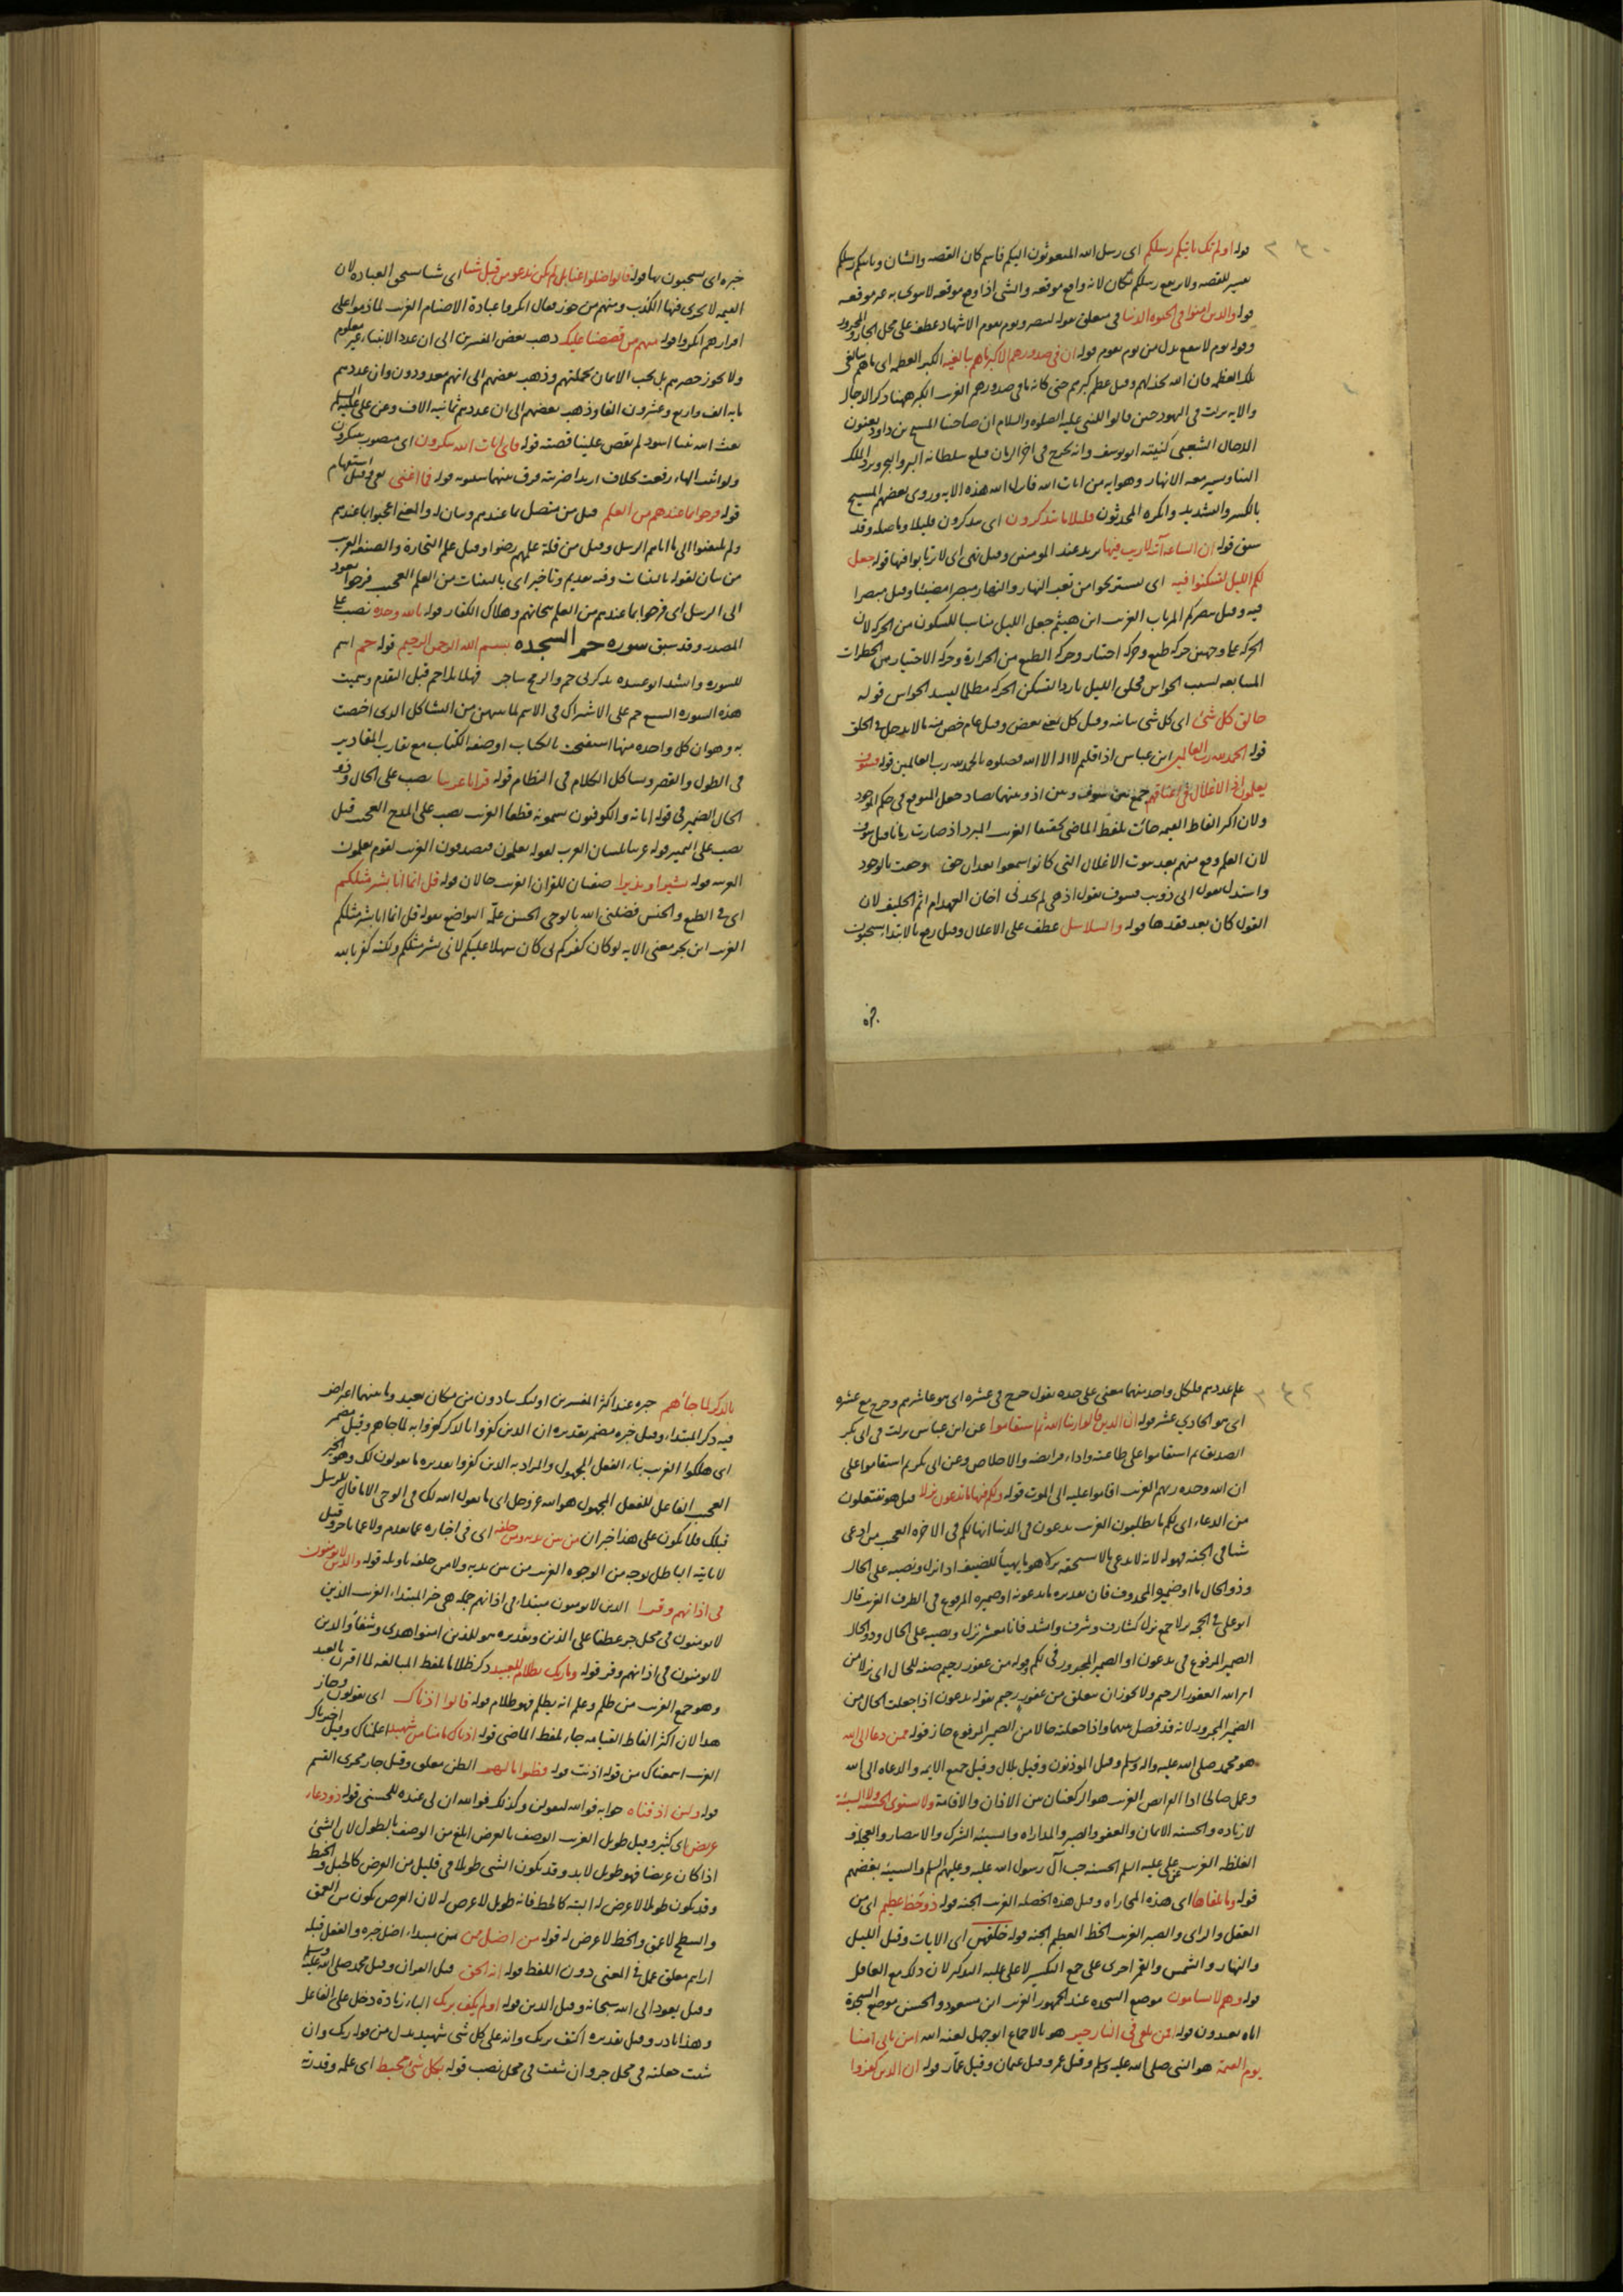 قوله اولم تك ياتيكم رسلكم اى رسل الله المبعوثون اليكم فاسم كان القصه والشان وياتيكم رسلكم
تفسير للقصه ولا يرتفع رسلكم بكان لانه واقع موقعه والشى اذا وقع موقعه لا ينوى به غير موقعه
قوله والذين امنوا فى الحيوه الدنيا فى متعلق بقوله لننصر ويوم يقوم الاشهاد عطف على محل الجار والمجرور
وقوله يوم لا ينفع بدل من يوم يقوم قوله ان فى صدورهم الا كبر ما هم ببالغيه الكبر العظمه اى ما هم ببالغى
تلك العظمه فان الله يخذلهم وقيل عظم كبرهم حتى كانه ما فى صدورهم الغريب الكبر ههنا ذكر الدجال
والايه نزلت فى اليهود حين قالوا للنبى عليه الصلوه والسلام ان صاحبنا المسيح بن داود يعنون
الدجال الشعبى كنيته ابو يوسف وانه يخرج فى اخر الزمان فيبلغ سلطانه البر والبحر ويرد الملك
الينا وتسير معه الانهار وهو ايه من ايات الله فانزل الله هذه الايه وروى بعضهم المسيح
بالكسر والتشديد وانكره المحدثون قليلا ما تتذكرون اى تتذكرون قليلا وما صله وقد
سبق قوله ان الساعه آتيه لا ريب فيها يريد عند المومنين وقيل نهى اى لا ترتابوا فيها قوله جعل
لكم الليل لتسكنوا فيه اى تستريحوا من تعب النهار والنهار مبصرا مضيئا وقيل مبصرا
فيه وقيل يبصركم المرئيات الغريب ابن هيثم جعل الليل مناسبا للسكون من الحركه لان
الحركه على وجهين حركه طبع وحركه اختيار وحركه الطبع من الحرارة وحركه الاختيار من الخطرات
المتتابعه لسبب الحواس فخلق الليل باردا لتسكن الحركه مظلما ليسد الحواس قوله
خالق كل شئ اى كل شى سائه وقيل كل بمعنى بعض وقيل عام خص منه ما لا يدخل فى الخلق
قوله الحمد لله رب العالمين ابن عباس اذا قلتم لا اله الا الله فصلوه بالحمد لله رب العالمين قوله فسوف
يعلمون اذ الاغلال فى اعناقهم جمع بين سوف وبين اذ وبينهما تضاد جعل المتوقع فى حكم الموجود
ولان اكثر الفاظ القيمه جائت بلفظ الماضى تحقيقا الغريب المبرد اذ صارت زمانا قبل سوف
لان العلم وقع منهم بعد ثبوت الاغلال التى كانوا سمعوا بعد ان حق وجبت بالوجود
القول كان بعد فقدها قوله والسلاسل عطف على الاغلال وقيل رفع بالابتداء يسحبون
خبره اى يسحبون بها قوله قالوا ضلوا عنا بل لم نكن ندعو من قبل شيا اى شيا يستحق العباده لان
القيمه لا يجرى فيها الكذب ومنهم من جوز فقال انكروا عبادة الاصنام الغريب لما ذموا على
اقرارهم انكروا قوله منهم من قصصنا عليك ذهب بعض المفسرين الى ان عدد الانبياء غير معلوم
ولا يجوز حصرهم بل يجب الايمان بجملتهم وذهب بعضهم الى انهم معدودون وان عددهم
مايه الف واربع وعشرون الفا وذهب بعضهم الى ان عددهم ثمانيه الاف وعن على عليه السلم
بعث الله نبيا اسود لم يقص علينا قصته قوله فاى ايات الله تنكرون اى منصوب بتنكرون
قوله فرحوا بما عندهم من العلم قيل من متصل بما عندهم وبيان له والمعنى اعجبوا بما عندهم
ولم يلتفتوا الى ما اتاهم الرسل وقيل من قلة علمهم رضوا وقيل علم التجارة والصنعه الغريب
من بيان لقوله بالبينات وفيه تقديم وتاخير اى بالبينات من العلم العجيب فرحوا يعود
الى الرسل اى فرحوا بما عندهم من العلم بنجاتهم وهلاك الكفار قوله بالله وحده نصب على
المصدر وقد سبق سوره حم السجده بسم الله الرحمن الرحيم قوله حم اسم
للسوره وانشد ابو عبيده يذكرنى حم والرمح شاجر فهلا تلا حم قبل التقدم وسميت
هذه السوره السبع حم على الاشتراك فى الاسم لما بينهن من التشاكل الذى اختصت
به وهو ان كل واحده منها استفتحت بالكتاب او صفه الكتاب مع تقارب المقادير
فى الطول والقصر وتشاكل الكلام فى النظام قوله قرانا عربيا نصب على الحال وذو
الحال الضمير فى قوله اياته والكوفيون يسمونه قطعا الغريب نصب على المدح العجيب قيل
نصب على التمييز قوله عربيا بلسان العرب لقوله يعلمون فيصدقون الغريب لقوم يعلمون
العربيه قوله بشيرا ونذيرا صفتان للقران الغريب حالان قوله قل انما انا بشر مثلكم
اى فى الطبع والجنس فضلنى الله بالوحى الحسن علمه التواضع بقوله قل انما انا بشر مثلكم
الغريب ابن بحر معنى الايه لو كان كفركم بى كان سهلا عليكم لانى بشر مثلكم ولكنه كفر بالله
على عددهم فلكل واحد منهما معنى على حده تقول خرج فى عشره اى هو عاشرهم وخرج مع عشره
اى هو الحادى عشر قوله ان الذين قالوا ربنا الله ثم استقاموا عن ابن عباس نزلت فى ابى بكر
الصديق ثم استقاموا على طاعته واداء فرايضه والاخلاص وعن ابى بكر ثم استقاموا على
ان الله وحده ربهم الغريب اقاموا عليه الى الموت قوله ولكم فيها ما تدعون نزلا قيل هو تفتعلون
من الدعاء اى لكم ما تطلبون الغريب تدعون فى الدنيا انها لكم فى الاخره العجيب من ادعى
شيا فى الجنه فهو له لانه لا يدعى ما لا يستحقه نزلا هو ما يهيأ للضيف اذا نزل ونصبه على الحال
وذو الحال ما او ضمير المحذوف فان تقديره ما تدعونه او ضميره المرفوع فى الظرف الغريب قال
ابو على فى الحجه نزلا جمع نزل كشارف وشرف وانشد فانا معشر نزل ونصبه على الحال وذو الحال
الضمير المرفوع فى تدعون او الضمير المجرور فى لكم وقوله من غفور رحيم صفه للحال اى نزلا من
امر الله الغفور الرحيم ولا يجوز ان يتعلق من غفور رحيم بقوله تدعون اذا جعلت الحال من
الضمير المجرور لانه قد فصل بينهما واذا جعلته حالا من الضمير المرفوع جاز قوله ممن دعا الى الله
هو محمد صلى الله عليه واله وسلم وقيل الموذنون وقيل بلال وقيل جميع الايمه والدعاه الى الله
وعمل صالحا ادا الفرايض الغريب هو الركعتان بين الاذان والاقامة ولا تستوى الحسنه ولا السيئة
لا زياده والحسنه الايمان والعفو والصبر والمداراه والسيئه الشرك والانتصار والعجله و
الغلظه الغريب عن على عليه السلم الحسنه حب آل رسول الله عليه وعليهم السلم والسيئه بغضهم
قوله وما يلقاها اى هذه المجازاه وقيل هذه الخصله الغريب الجنه قوله ذو حظ عظيم اى من
العقل والراى والصبر الغريب الحظ العظيم الجنه قوله خلقهن اى الايات وقيل الليل
والنهار والشمس والقمر اجرى على جمع التكسير لا على غلبه التذكير لان ذلك مع العاقل
قوله وهم لا يسامون موضع السجده عند الجمهور الغريب ابن مسعود والحسن موضع السجدة
اياه تعبدون قوله افمن يلقى فى النار خير هو بالاجماع ابو جهل لعنه الله امن ياتى امنا
يوم القيمة هو النبى صلى الله عليه وسلم وقيل عمر وقيل عثمان وقيل عمار قوله ان الذين كفروا
بالذكر لما جاءهم خبره عند اكثر المفسرين اولئك ينادون من مكان بعيد وما بينهما اعتراض
فيه ذكر المبتدا وقيل خبره مضمر تقديره ان الذين كفروا بالذكر كفروا به لما جاهم وقيل مضمر
اى هلكوا الغريب بناء الفعل المجهول والمراد به الذين كفروا تقديره ما يقولون لك وهو الخبر
العجيب الفاعل للفعل المجهول هو الله عز وجل اى ما يقول الله لك فى الوحى الا ما قال للرسل
قبلك فلا يكون على هذا خبر ان من بين يديه ومن خلفه اى فى اخباره عما تقدم ولا عما تاخر وقيل
لا ياتيه الباطل بوجه من الوجوه الغريب من بين يديه ولا من خلفه تاويله قوله والذين لا يومنون
فى اذانهم وقرا الذين لا يومنون مبتداء فى اذانهم جمله هى خبر المبتداء الغريب الذين
لا يومنون فى محل جر عطفا على الذين وتقديره هو للذين امنوا هدى وشفاء والذين
لا يومنون فى اذانهم وقر قوله وما ربك بظلام للعبيد ذكر ظلاما بلفظ المبالغه لما اقترن بالعبيد
وهو جمع الغريب من ظلم وعلم انه يظلم فهو ظلام قوله قالوا اذناك اى يقولون وجاز
هذا لان اكثر الفاظ القيامه جاء بلفظ الماضى قوله اذناك ما منا من شهيد اعلمناك وقيل اخبرناك
الغريب اسمعناك من قوله اذنت قوله وظنوا ما لهم الظن معلق وقيل جار مجرى القسم
قوله ولئن اذقناه جوابه فوالله ليقولن وكذلك فوالله ان لى عنده للحسنى قوله ذو دعاء
عريض اى كثير وقيل طويل الغريب الوصف بالعرض ابلغ من الوصف بالطول لان الشئ
اذا كان عريضا فهو طويل لابد وقد يكون الشى طويلا فى قليل من العرض كالحبل والخيط
وقد يكون طويلا لا عرض له البته كالخط فانه طويل لا عرض له لان العرض يكون بين العمق
والسطح لا عمق والخط لا عرض له قوله من اضل ممن من مبتداء اضل خبره والفعل قبله
ارايتم معلق عمل فى المعنى دون اللفظ قوله انه الحق قيل القران وقيل محمد صلى الله عليه وسلم
وقيل يعود الى الله سبحانه وقيل الدين قوله اولم يكف بربك الباء زيادة دخل على الفاعل
وهذا نادر وقيل تقديره اكتف بربك وانه على كل شى شهيد بدل من قوله ربك وان
شئت جعلته فى محل جر وان شئت فى محل نصب قوله بكل شئ محيط اى علمه وقدرته